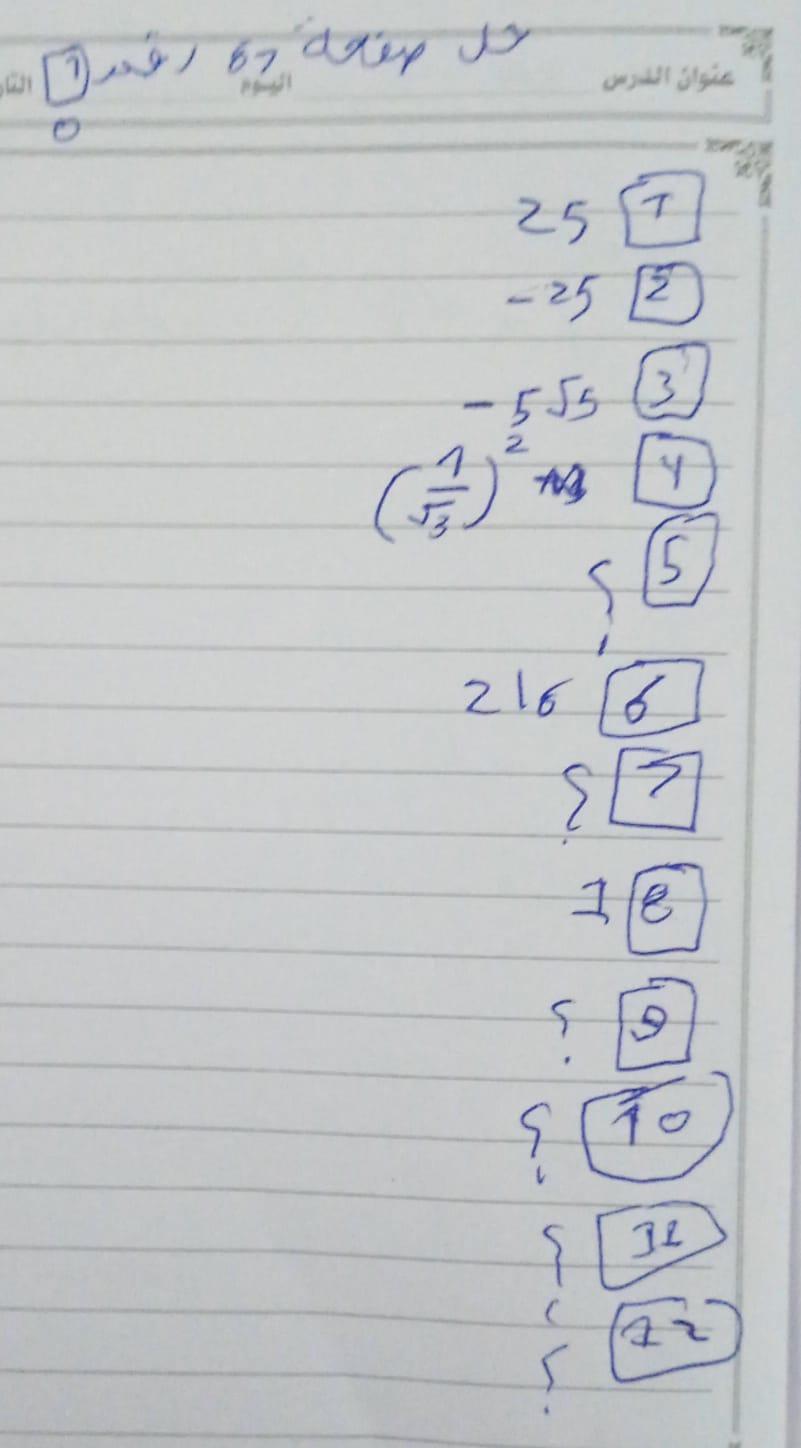 حل صفحة 67 رقم 1
عنوان الدرس اليوم
0
1 25
2 -25
3 -5√5
4 (1/√3)²
5 ؟
6 216
7 ؟
8 1
9 ؟
10 ؟
11 ؟
12 ؟